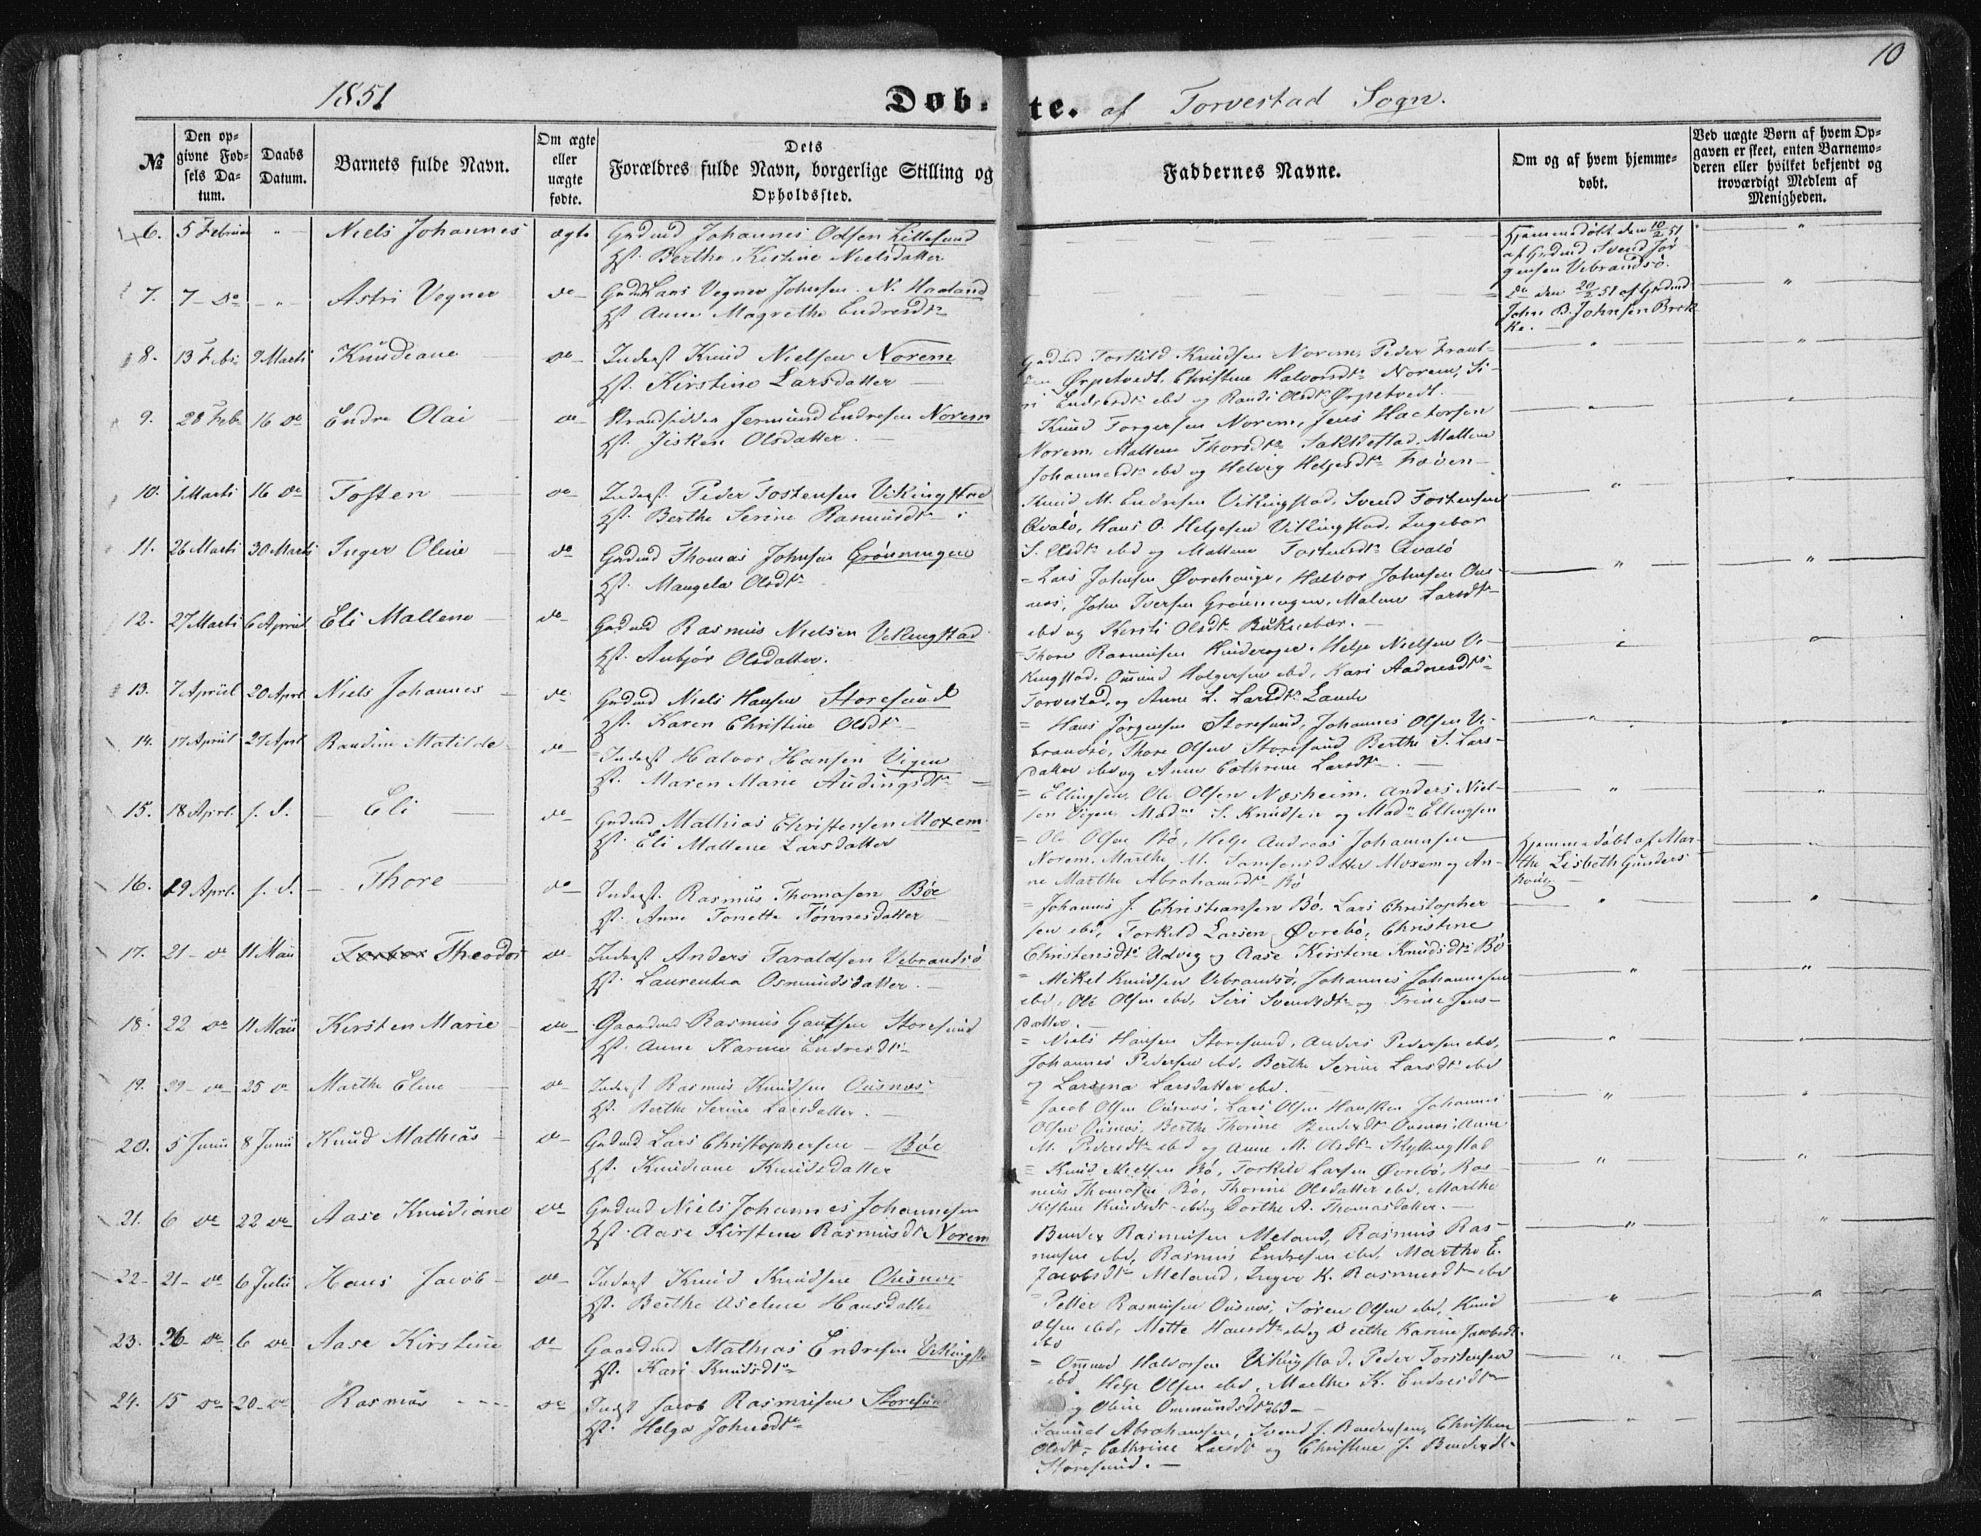 1851
Døb-
te. af Torvestad Sogn.
10
№
Den op-
givne Fød-
sels Da-
tum.
Daabs
Datum.
Barnets fulde Navn.
Om ægte
eller
uægte
fødte.
Dets
Forældres fulde Navn, borgerlige Stilling og
Opholdssted.
Faddernes Navne.
Om og af hvem hjemme-
døbt.
Ved uægte Børn af hvem Op-
gaven er skeet, enten Barnemo-
deren eller hvilket bekjendt og
troværdigt Medlem af
Menigheden.
6. 5 Februar " Niels Johannes ægte Grdmd Johannes Odsen Littlesund
Hst. Berthe Kistine Nielsdatter
Hjemmedøbt den 10/2 51
af Grdmd Svend Jør-
gensen Vebrandsö.
7. 7 - do " Astri Vegner do Grdmd Lars Vegner Johnsen N. Haaland
Hst. Anne Magrethe Endresdtr
do den 20/2 51 af Grdmd
John B. Johnsen Brek-
ke.
8. 13 Febr 9 Marti Knudiane do Inderst Knud Nielsen Norem
Hst. Kirstine Larsdatter
Grdmd Torkild Knudsen Norem, Peder
Ørpetvedt, Christine Halvorsdtr Norem, Si-
ri Endresdtr ibd og Randi Olsdtr Ørpetvedt.
9. 28 Feb. 16 do Endre Olai do Strandsidder Jermund Endresen Norem
Hst. Jisken Olsdatter.
Knud Torgersen Norem, Jens
Norem, Mallene Thorsdtr Mallene
Johannesdtr ibd og Helvig Helgesdtr
10. 1 Marti 16 do Tosten do Inderst Peder Tostensen Vikingstad
Hst. Berthe Serine Rasmusdtr
Knud M. Endresen Vikingstad, Svend Tostensen
Qvalö, Hans O. Helgesen Vikingstad, Ingebor
S. Olsdtr ibd og Mallene Tostensdtr Qvalö
11. 26 Marti 30 Marti Inger Oline do Grdmd Thomas Johnsen Grönningen
Hst. Mangela Olsdtr
Lars Johnsen Øvrehauge, Halvor Johnsen Ous-
næs, John Iversen Grönningen, Malene Larsdtr
ibd og Kersti Olsdtr
12. 27 Marti 6 Apriil Eli Mallene do Grdmd Rasmus Nielsen Vikingstad
Hst. Anbjør Olsdatter.
Thore Rasmusen Helge Nielsen Vi-
kingstad, Omund Holgersen ibd, Kari Aadnesdtr
Torvestad, og Anne L. Larsdtr Lande
13. 7 Apriil 20 Aprl Niels Johannes do Grdmd Niels Hansen Storesund
Hst. Karen Christine Olsdtr
Hans Jørgensen Storesund, Johannes Olsen Ve-
brandsö, Thore Olsen Storesund Berthe S. Lars-
datter ibd og Anne Cathrine Larsdtr
14. 17 Apriil 27 Aprl Randine Matilde do Inderst Halvor Hansen Vigen
Hst. Maren Marie Audingsdtr
Ellingsen, Ole Olsen Næsheim, Anders Niel-
sen Vigen, Mad S. Knudsen og Mad Ellingsen
15. 18 Aprl. s. d. Eli do Grdmd Mathias Christensen Moxem
Hst. Eli Mallene Larsdatter
Ole Olsen Bö, Helge Andreas Johannesen
Norem, Marthe M. Samsonsdatter Moxem og An-
ne Marthe Abrahamsdtr Bö
Hjemmedøbt af Mar-
the Lisbeth Gunders
16. 19 Aprl. s. d. Thore do Inderst Rasmus Thomasen Böe
Hst. Anne Tonette Tönnesdatter
Johannes J. Christiansen Bö, Lars Christopher
sen ibd, Torkild Larsen Øvrebö, Christine
Christensdtr Udvig og Aase Kirstine Knudsdtr Bö
17. 21 - do 11 Maii Theodor do Inderst Anders Taraldsen Vebrandsö
Hst. Laurentia Osmundsdatter.
Mikel Knudsen Vebrandsö, Johannes Johannesen
ibd, Ole Olsen ibd, Siri Svendsdtr og Trine Jens-
datter.
18. 22 do 11 Maii Kirsten Marie do Gaardmd Rasmus Gautsen Storesund
Hst. Anne Karine Endresdtr
Niels Hansen Storesund, Anders Pedersen ibd,
Johannes Pedersen ibd, Berthe Serine Larsdtr ibd
og Larsina Larsdatter ibd.
19. 29 - do 25 do Marthe Eline do Inderst Rasmus Knudsen Ousnæs
Hst. Berthe Serine Larsdatter.
Jacob Olsen Ousnæs, Lars Olsen Hansken Johannes
Olsen Ousnæs, Berthe Thorine Bendixdtr Ousnæs, Anne
M. Pedersdtr ibd og Anne M. Olsdtr
20. 5 Junii 8 Junii Knud Mathias do Grdmd Lars Christophersen Böe
Hst. Knudiane Knudsdatter
Knud Nielsen Bö, Torkild Larsen Øvrebö, Ras-
mus Thomasen Bö, Thorine Olsdatter ibd, Marthe
Kistine Knudsdtr ibd og Dorthe A. Thomasdatter.
21. 6 do 22 do Aase Knudiane do Grdmd Niels Johannes Johannesen
Hst. Aase Kirstine Rasmusdtr Norem
Bendix Rasmusen Meland, Rasmus Ras-
musen ibd, Rasmus Endresen ibd, Marthe E.
Jacobsdtr Meland, Inger K. Rasmusdtr ibd
22 21 - do 6 Julii Hans Jacob do Inderst Knud Knudsen Ousnæs
Hst. Berthe Aselene Hansdatter
Petter Rasmusen Ousnæs, Søren Olsen ibd, Knud
Olsen ibd, Mette Hansdtr ibd og Berthe Karine Jacobsdtr
ibd
23. 26 do 6 do Aase Kirstine do Gaardmd Mathias Endresen Vikingst
Hst. Kari Knudsdtr
Ommund Halvorsen Vikingstad, Peder Torstensen
ibd, Helge Olsen ibd, Marthe K. Endresdtr
og Oline Ommundsdtr ibd
24. 15 do 20 do Rasmus do Indst Jacob Rasmusen Storesund
Hst. Helga Johnsdtr
Samuel Abrahamsen, Svend J. Christine
Olsdtr, Cathrine Larsdtr og Christine J. Bendixdtr
Storesund.